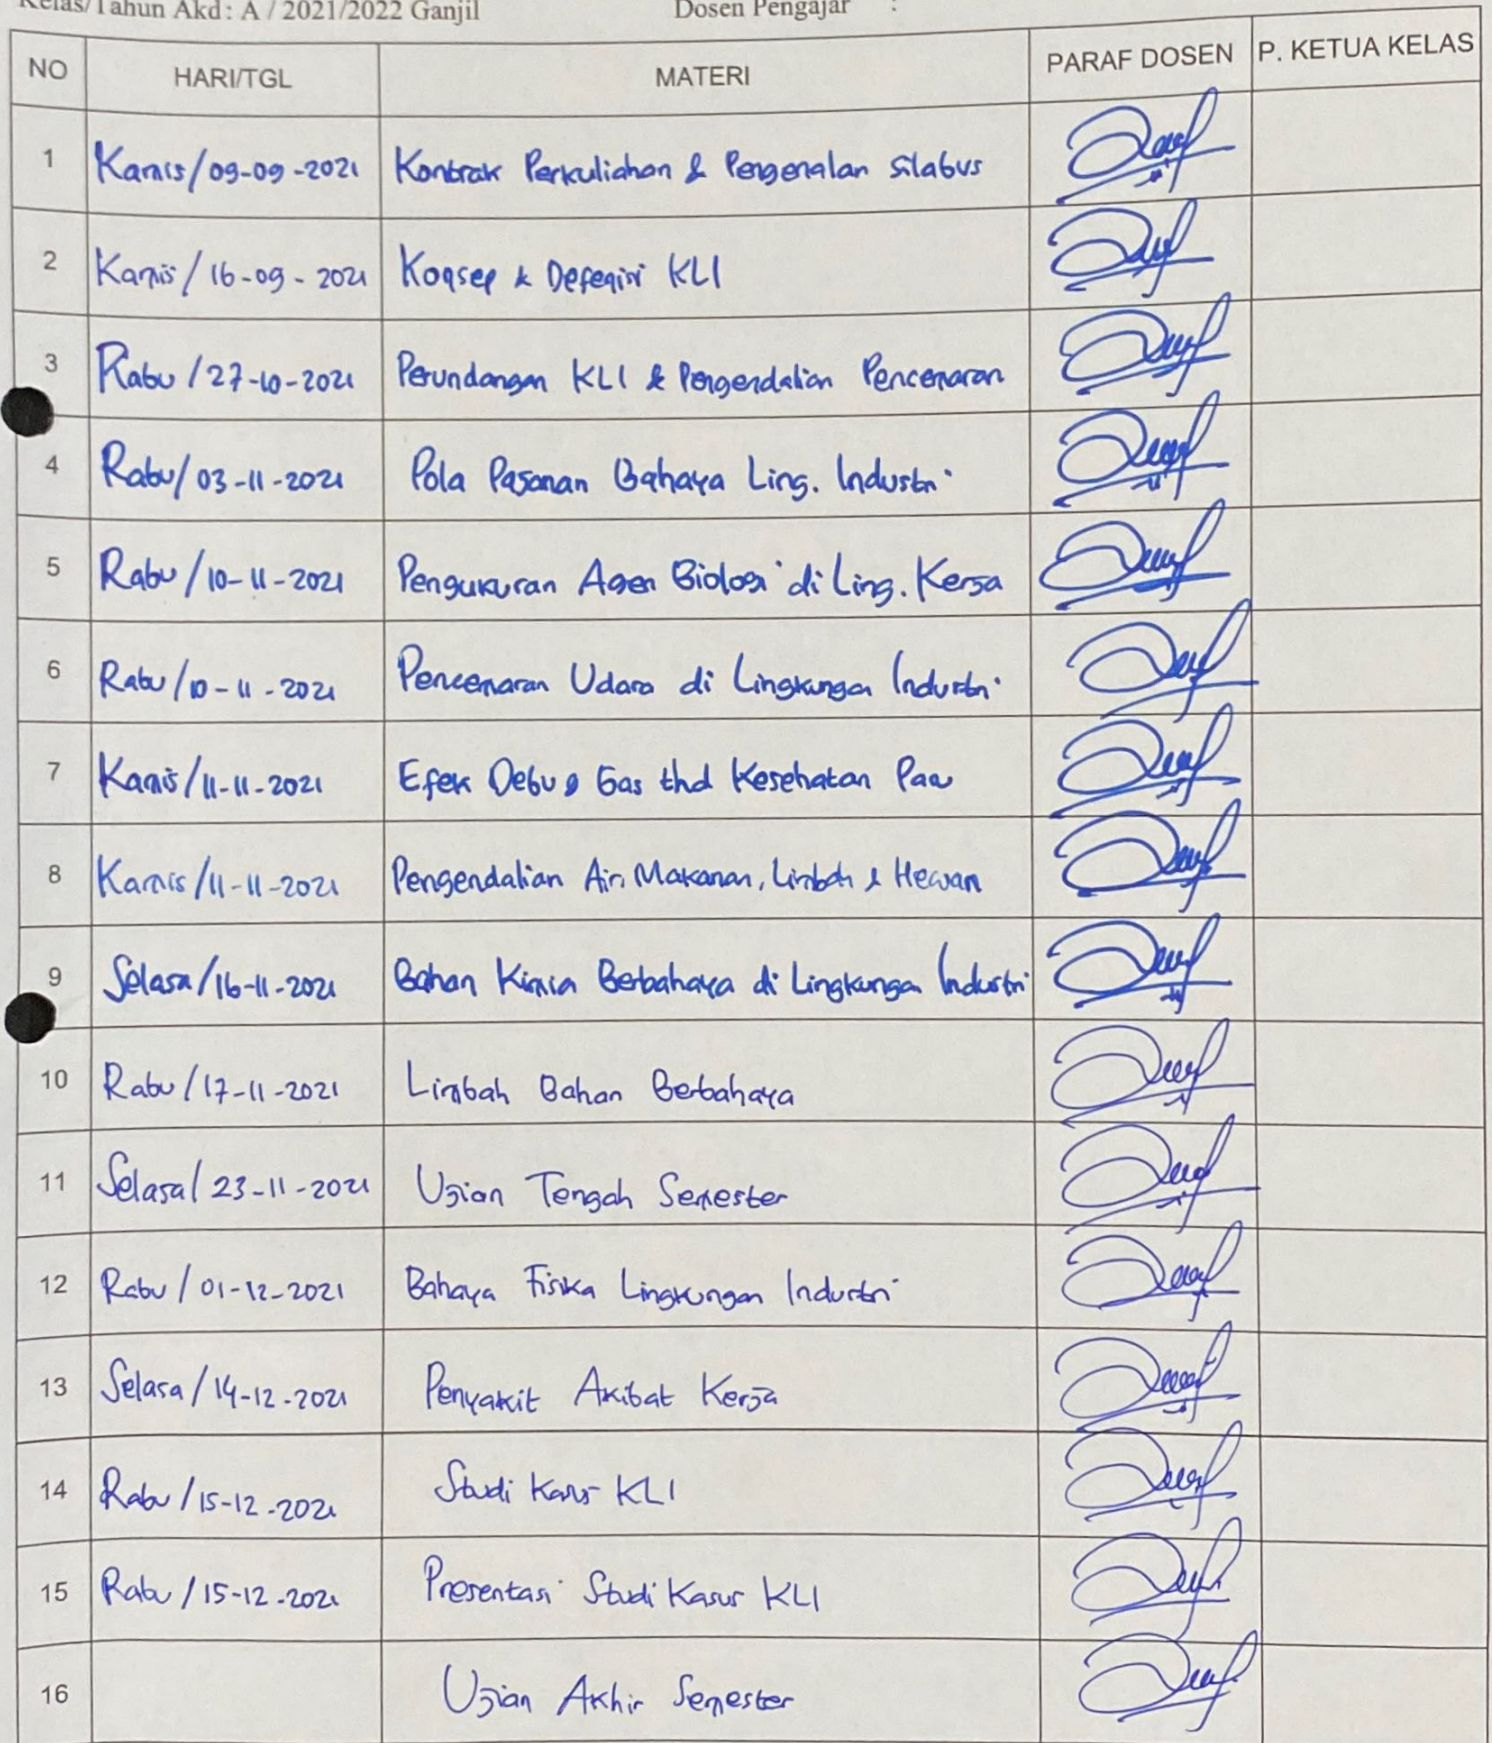 Kelas/Tahun Akd : A / 2021/2022 Ganjil Dosen Pengajar :
NO HARI/TGL MATERI PARAF DOSEN P. KETUA KELAS
1 Kamis/09-09-2021 Kontrak Perkuliahan & Pengenalan Silabus
2 Kamis/16-09-2021 Konsep & Defenisi KLI
3 Rabu/27-10-2021 Perundangan KLI & Pengendalian Pencemaran
4 Rabu/03-11-2021 Pola Pajanan Bahaya Ling. Industri
5 Rabu/10-11-2021 Pengukuran Agen Biologi di Ling. Kerja
6 Rabu/10-11-2021 Pencemaran Udara di Lingkungan Industri
7 Kamis/11-11-2021 Efek Debu & Gas thd Kesehatan Paru
8 Kamis/11-11-2021 Pengendalian Air, Makanan, Limbah & Hewan
9 Selasa/16-11-2021 Bahan Kimia Berbahaya di Lingkungan Industri
10 Rabu/17-11-2021 Limbah Bahan Berbahaya
11 Selasa/23-11-2021 Ujian Tengah Semester
12 Rabu/01-12-2021 Bahaya Fisika Lingkungan Industri
13 Selasa/14-12-2021 Penyakit Akibat Kerja
14 Rabu/15-12-2021 Studi Kasus KLI
15 Rabu/15-12-2021 Presentasi Studi Kasus KLI
16 Ujian Akhir Semester